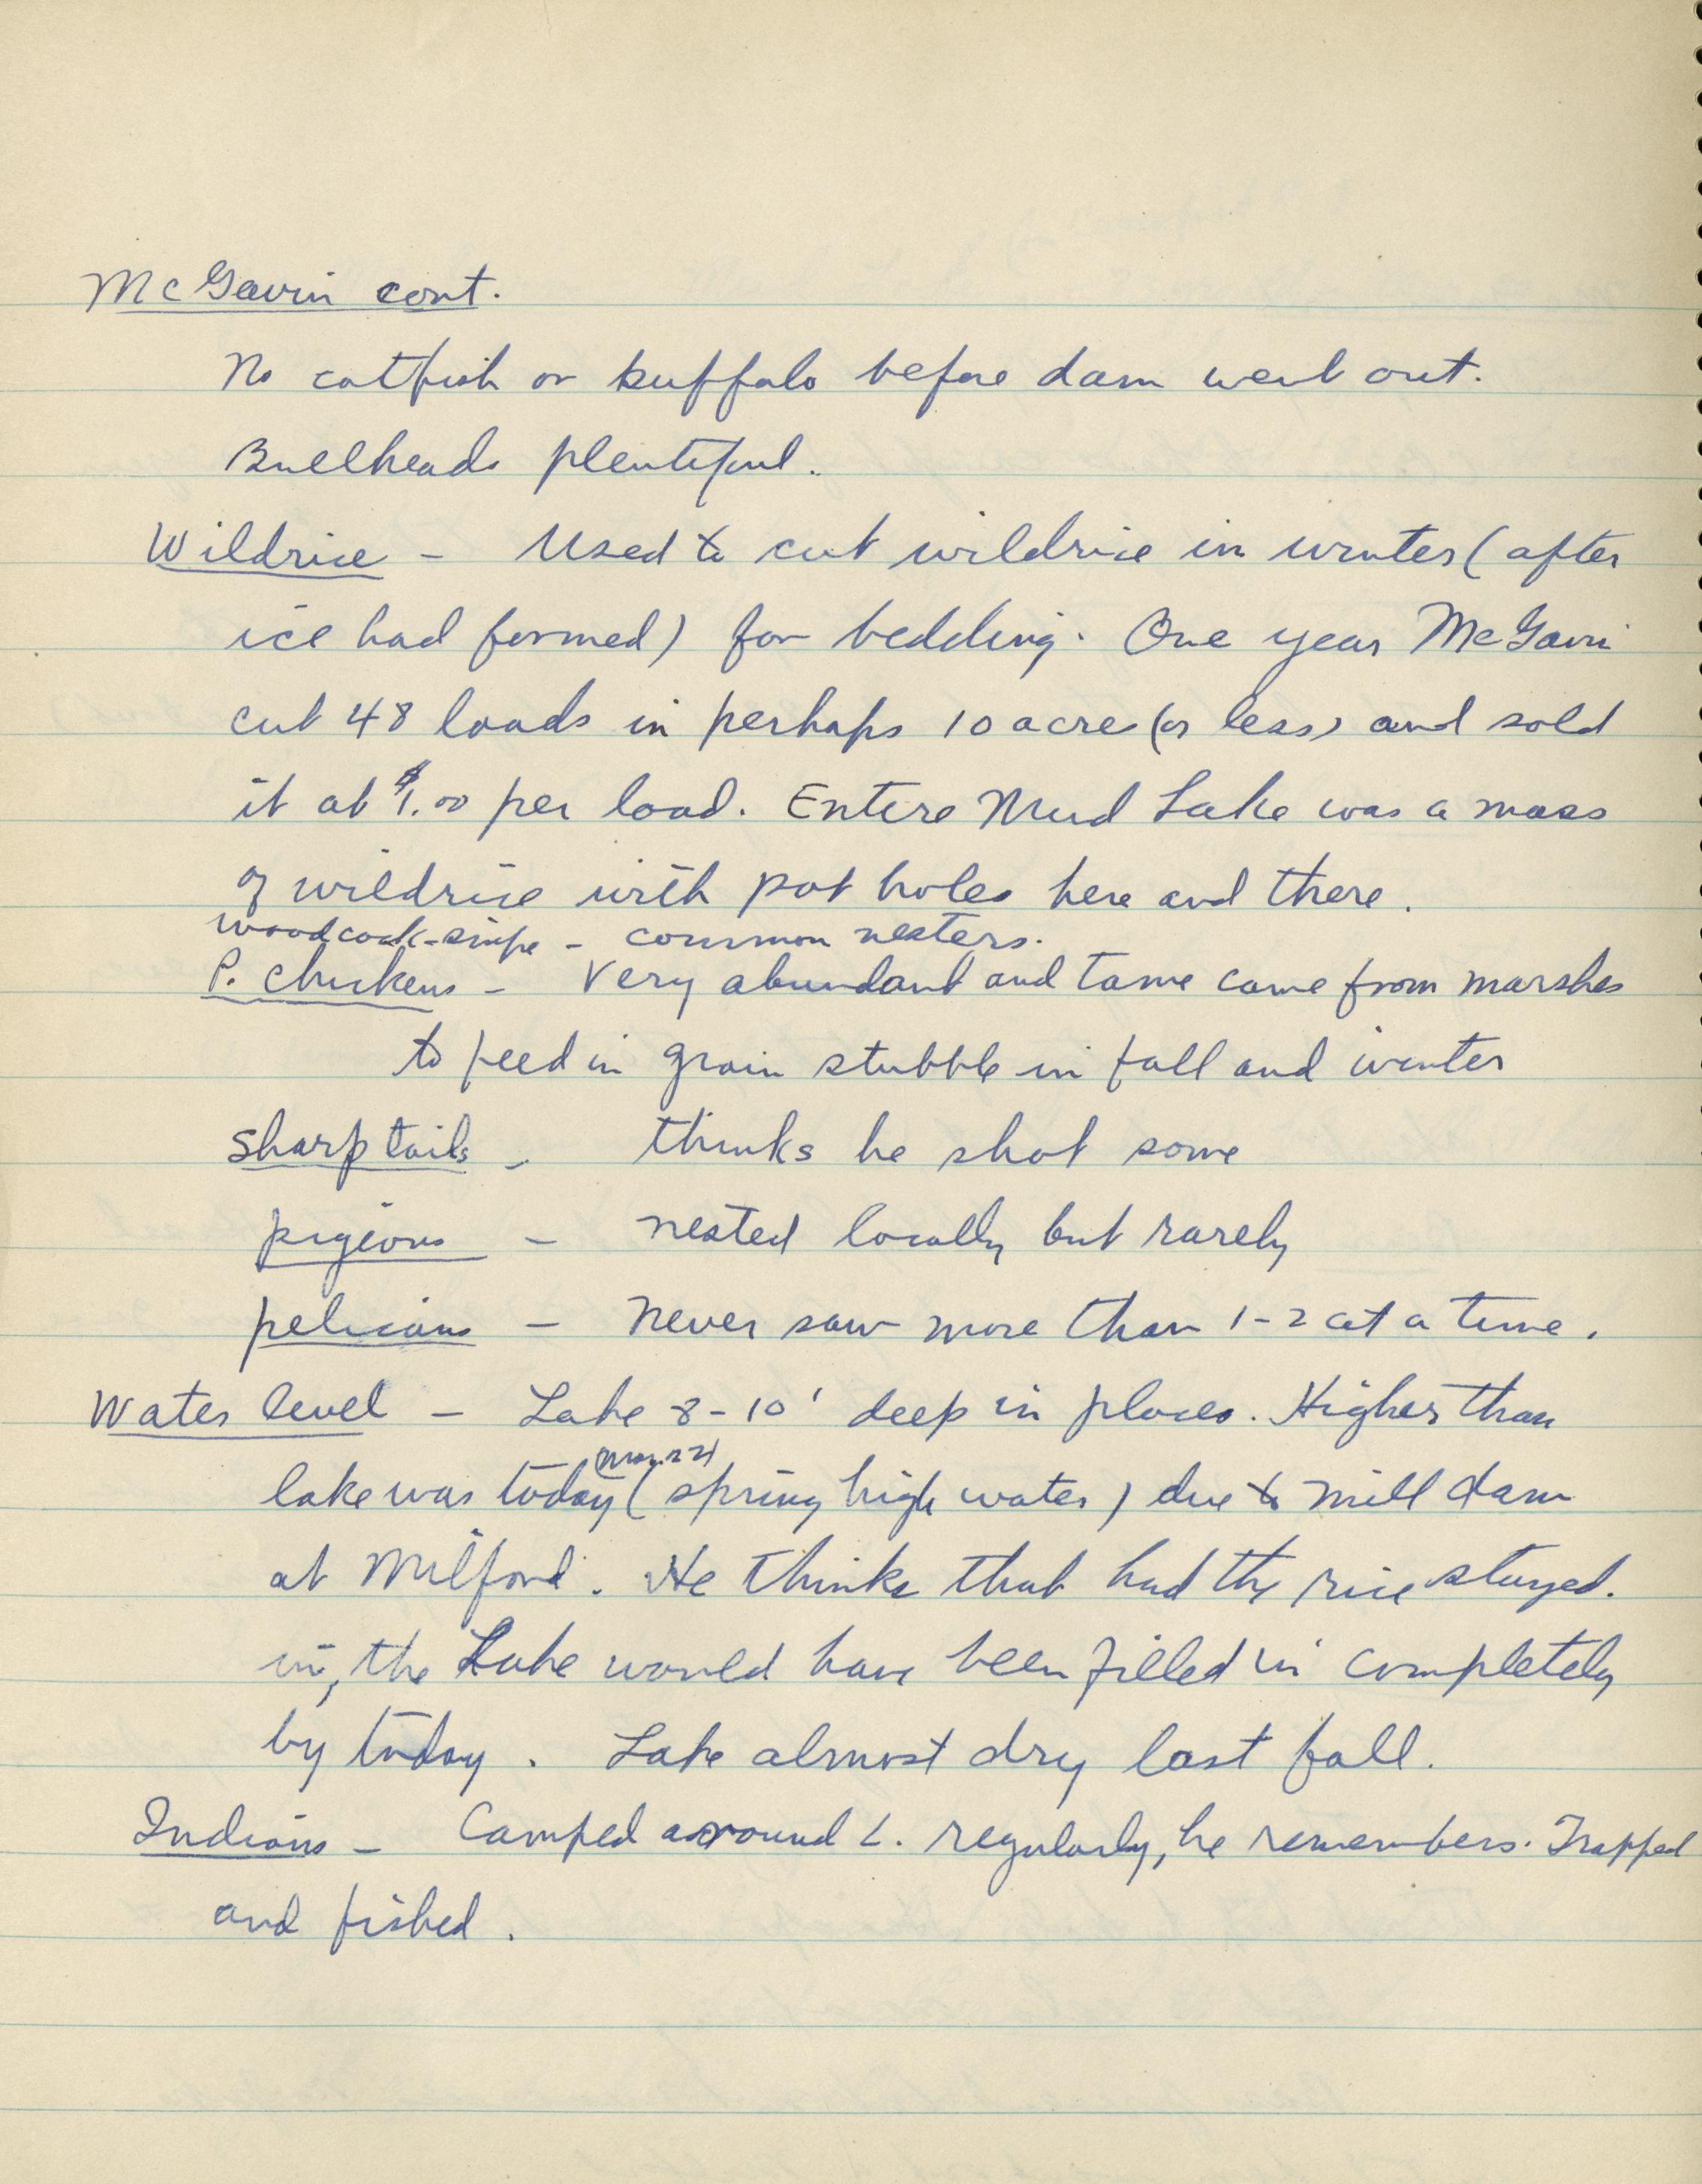 McGavin cont.
No catfish or buffalo before dam went out.
Bullheads plentiful.
Wildrice - Used to cut wildrice in winter (after
ice had formed) for bedding. One year McGavin
cut 48 loads in perhaps 10 acre (or less) and sold
it at $1.00 per load. Entire Mud Lake was a mass
of wildrice with pot holes here and there.
woodcock-snipe - common nesters.
P. chickens - Very abundant and tame came from marshes
to feed in grain stubble in fall and winter
sharptails - thinks he shot some
pigeons - nested locally but rarely
pelicans - never saw more than 1-2 at a time.
Water level - Lake 8-10' deep in places. Higher than
lake was today (spring high water) due to mill dam
at Milford. He thinks that had the rice stayed.
in, the Lake would have been filled in completely
by today. Lake almost dry last fall.
Indians - Camped around L. regularly, he remembers. Trapped
and fished.